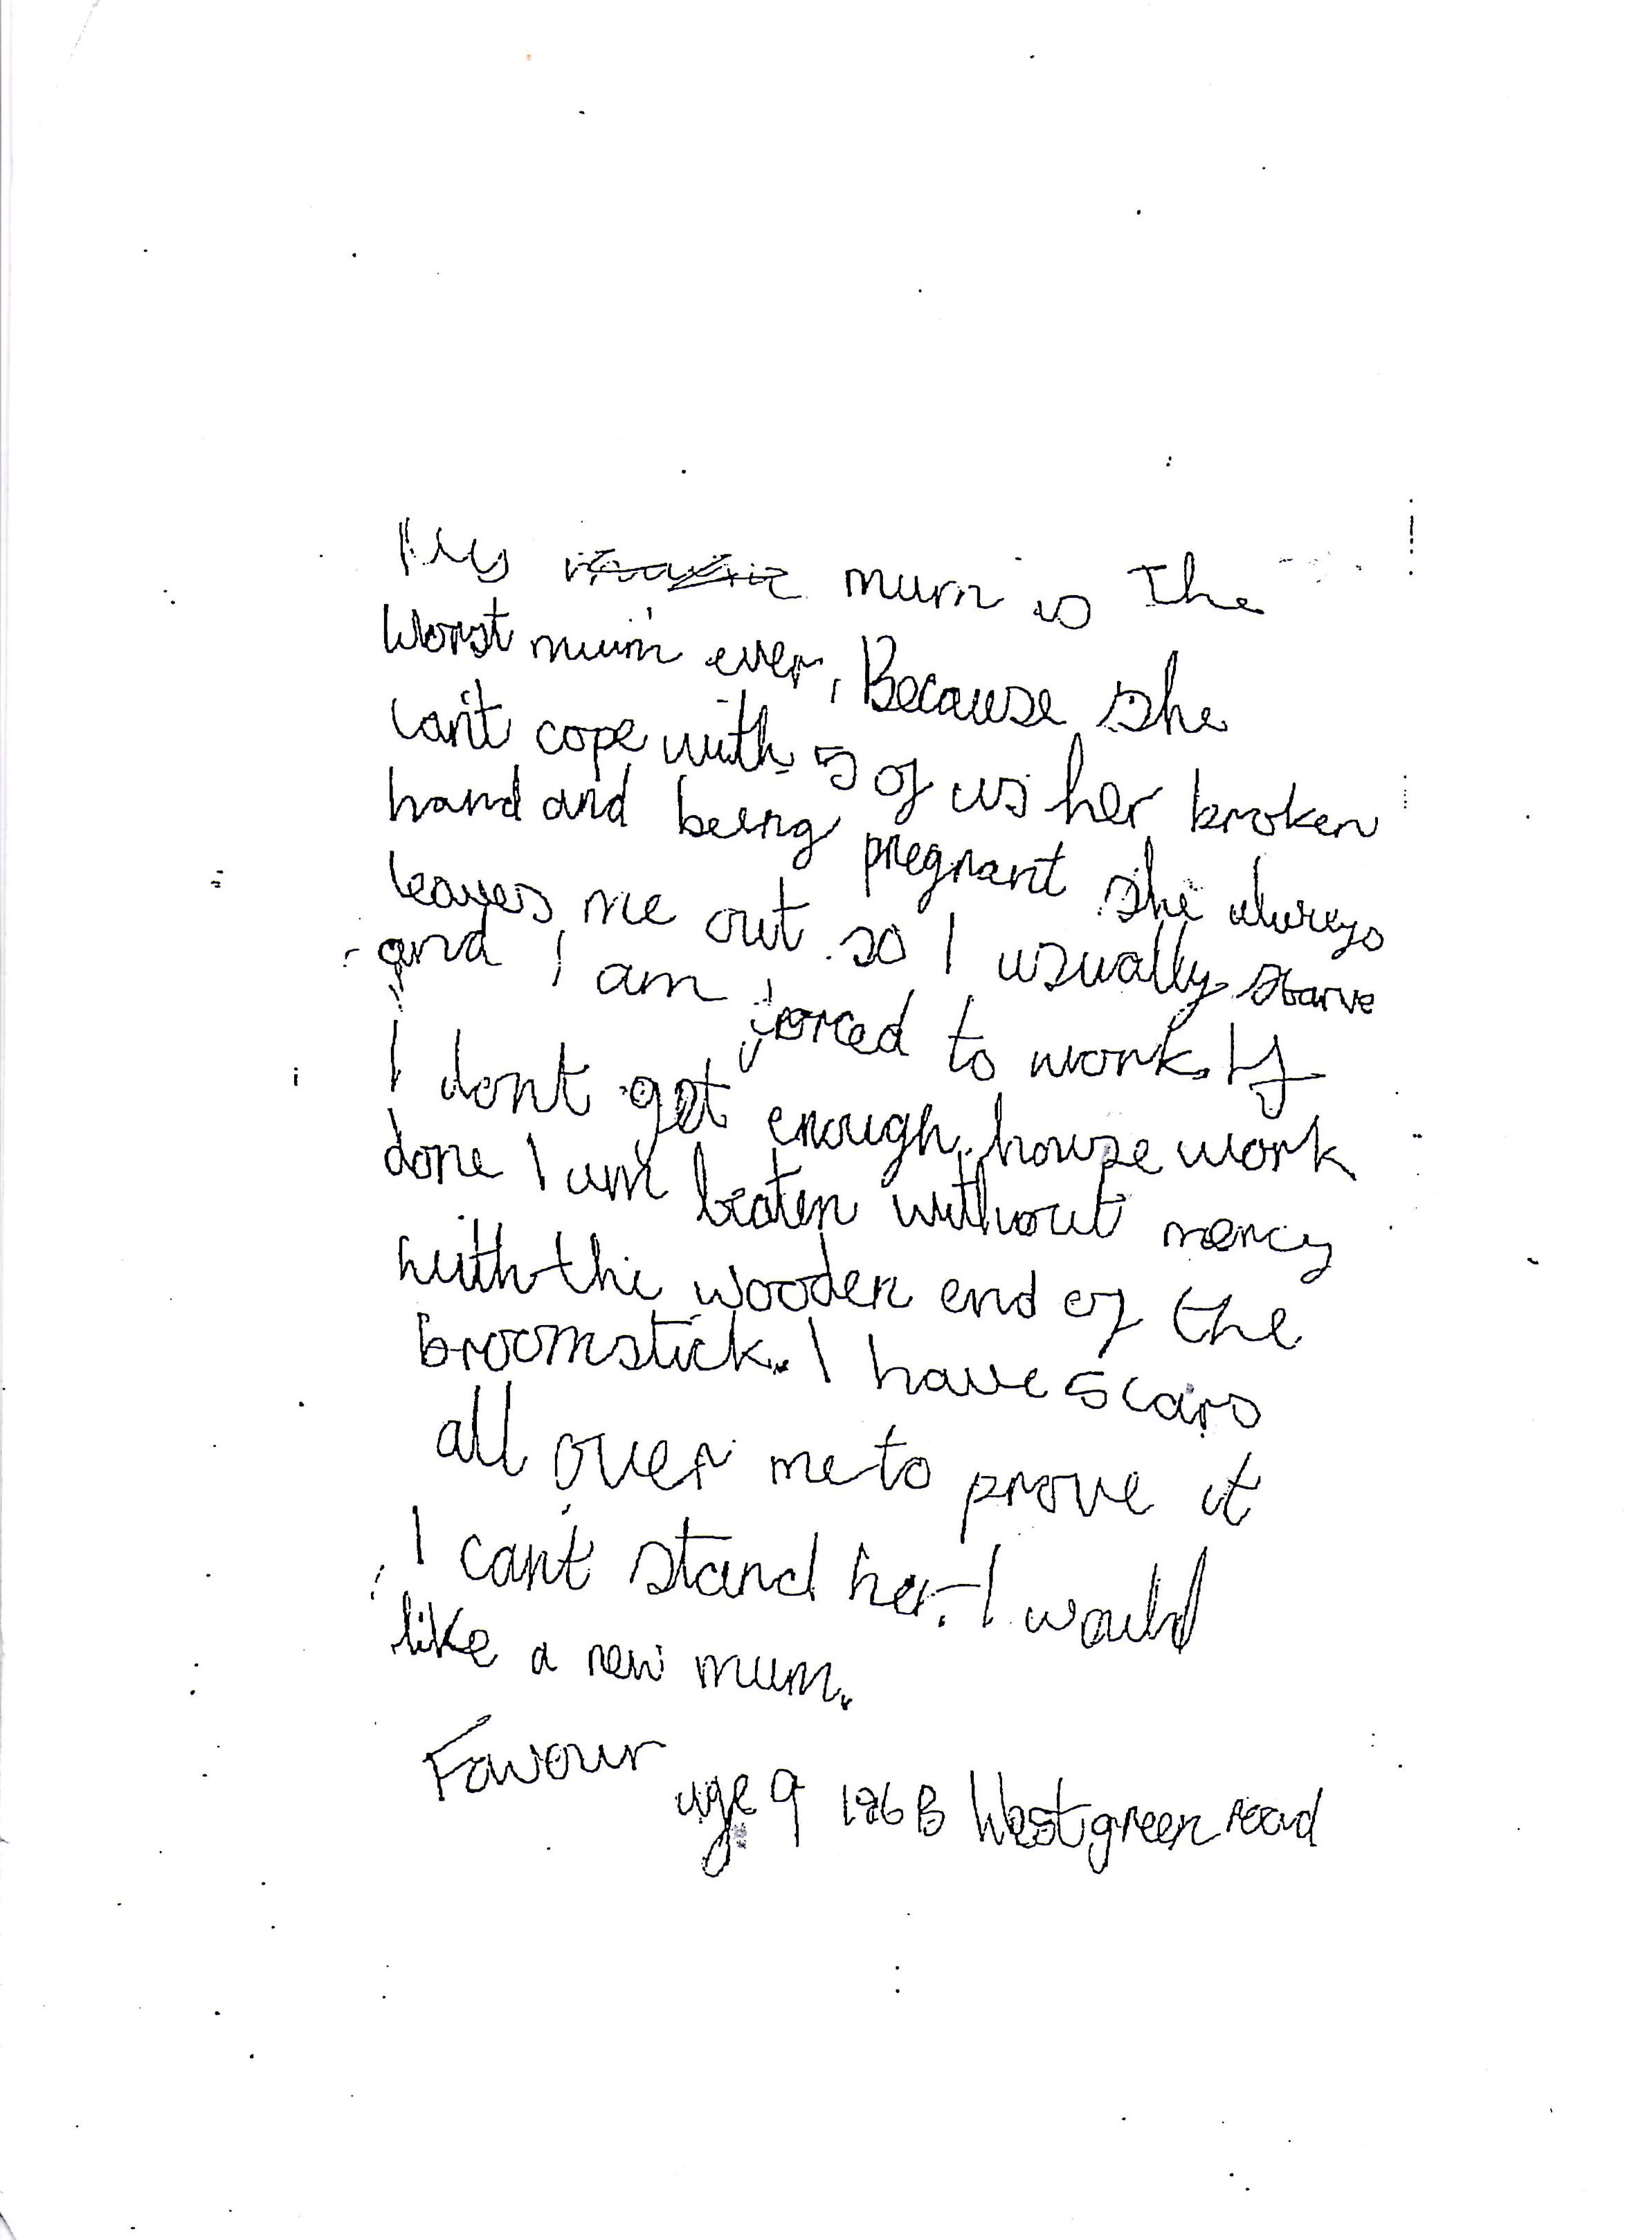 My mum is the
worst mum ever, Because she
can't cope with 5 of us her broken
hand and being pregnant she always
leaves me out so I usually starve
and I am forced to work. If
I dont get enough house work
done I am beaten without mercy
with the wooden end of the
broomstick. I have scars
all over me to prove it
I can't stand her. I would
like a new mum.
Favour age 9 186 B Westgreen road